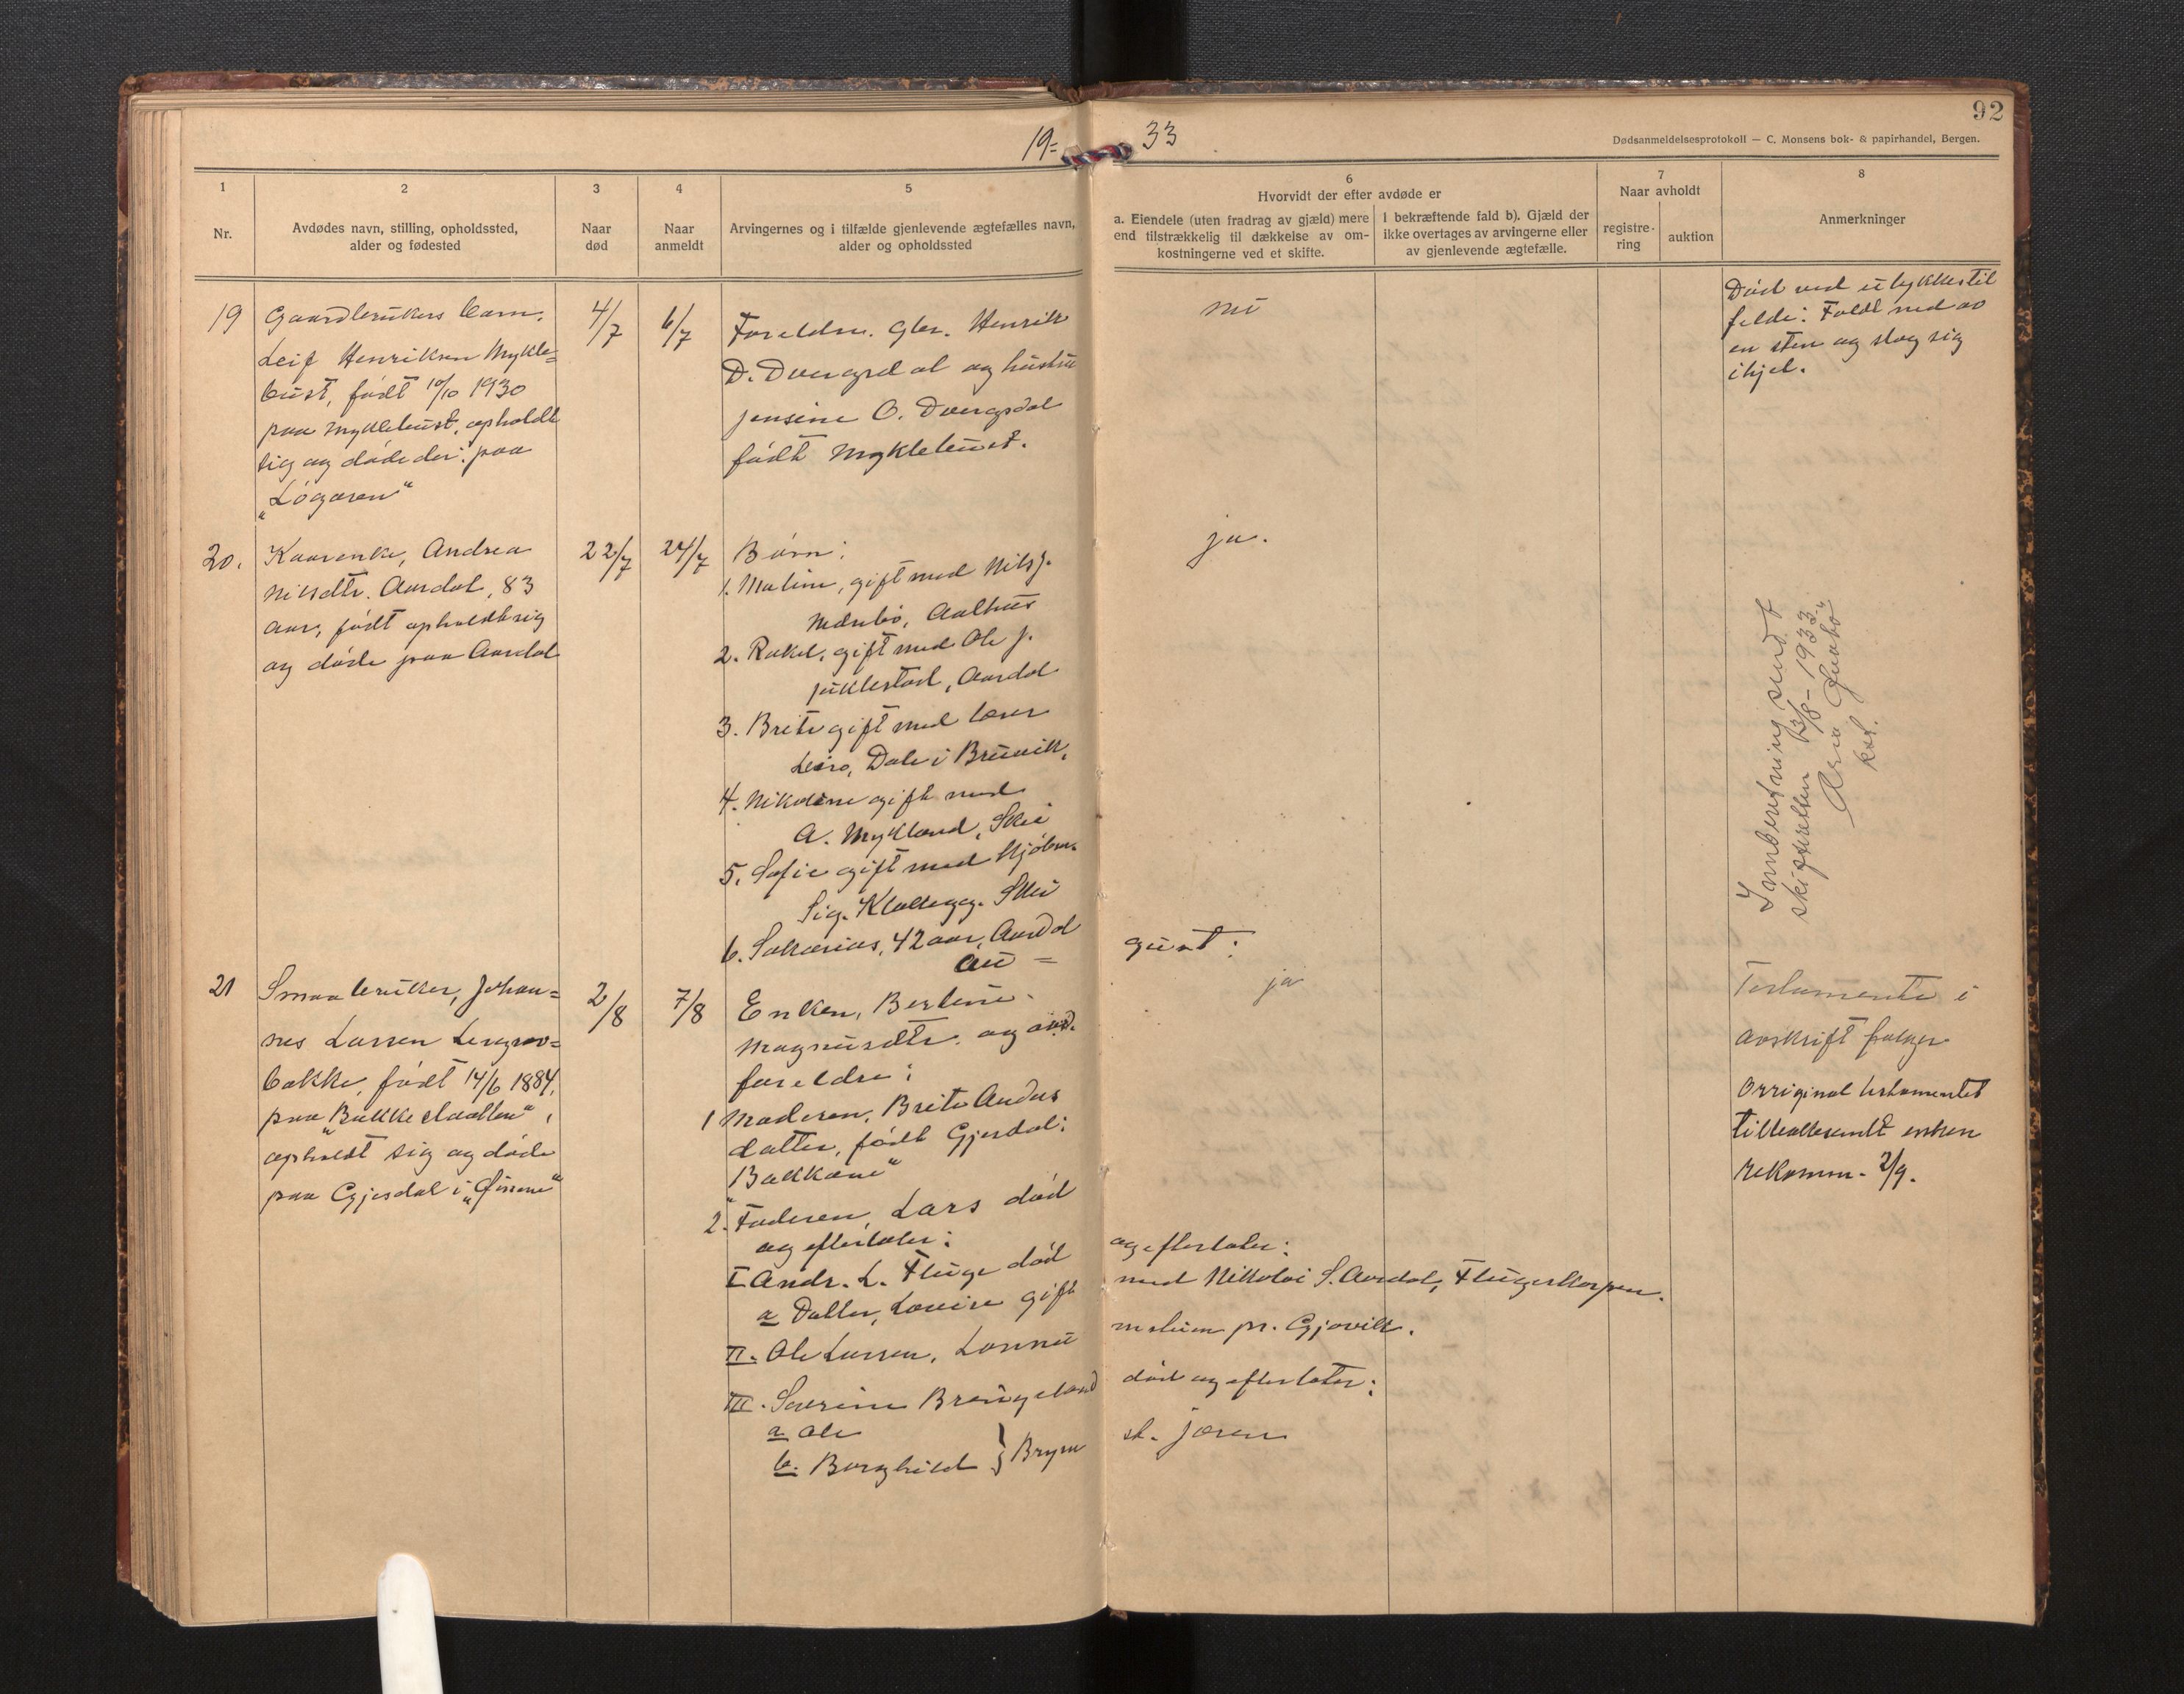 92
19= 33
Dødsanmeldelsesprotokoll — C. Monsens bok- & papirhandel, Bergen.
1
Nr.
2
Avdødes navn, stilling, opholdssted,
alder og fødested
3
Naar
død
4
Naar
anmeldt
5
Arvingernes og i tilfælde gjenlevende ægtefælles navn,
alder og opholdssted
6
Hvorvidt der efter avdøde er
a. Eiendele (uten fradrag av gjæld) mere
end tilstrækkelig til dækkelse av om-
kostningerne ved et skifte.
I bekræftende fald b). Gjæld der
ikke overtages av arvingerne eller
av gjenlevende ægtefælle.
7
Naar avholdt
registre-
ring
auktion
8
Anmerkninger
19
Gaardbrukers barn,
Leif Henriksen Mykle=
bust, født 10/10 1930
paa Myklebust, opholdt
sig og døde der: paa
„Løgaren“
4/7
6/7
Foreldre. Gbr. Henrik
D. Dvergsdal og hustru
Jensine O. Dvergsdal
født Myklebust.
nei
Død ved ulykkestil
felde: Faldt ned av
en sten og slog sig
ihjel.
20.
Kaarenke, Andrea
Nilsdtr. Aardal, 83
aar, født opholdt sig
og døde paa Aardal
22/7
24/7
Børn:
1. Maline, gift med Nils J.
Aalhus
2. Rakel, gift med Ole J.
Juklestad, Aardal
3. Brite gift med lærer
Leiro, Dale i Bruvik,
4. Nikoline gift med
A. Mykland, Skei
5. Sofie gift med kjøbm.
Sig. Klakegg. Skei
6. Sakarias, 42 aar, Aardal
ja.
Innberetning sendt
skifteretten 23/8-1933.
kst.
au = gust:
21
Smaabruker, Johan=
nes Larsen
bakke, født 14/6 1884,
paa „Bakkehaallen“,
opholdt sig og døde
paa Gjesdal i „Øirene“
2/8
7/8
Enken, Bertine
Magnusdtr. og avd.
foreldre:
1 Moderen, Brite Anders
datter, født Gjesdal:
„Bakkane“
2. Faderen, Lars død
og efterlater:
og efterlater:
I Andr. L. Fluge død
a Datter, Lovise gift med Nikolai S. Aardal, Flugeskorpen.
II. Ole Larsen, pr. Gjøvik.
III. Severine Brengeland død og efterlater:
a Ole
b. Borghild } Bryne st. Jæren
ja
Testamente i
avskrift følger
Orriginal testamentet
tilbakesendt enken
rekomm. 2/9.